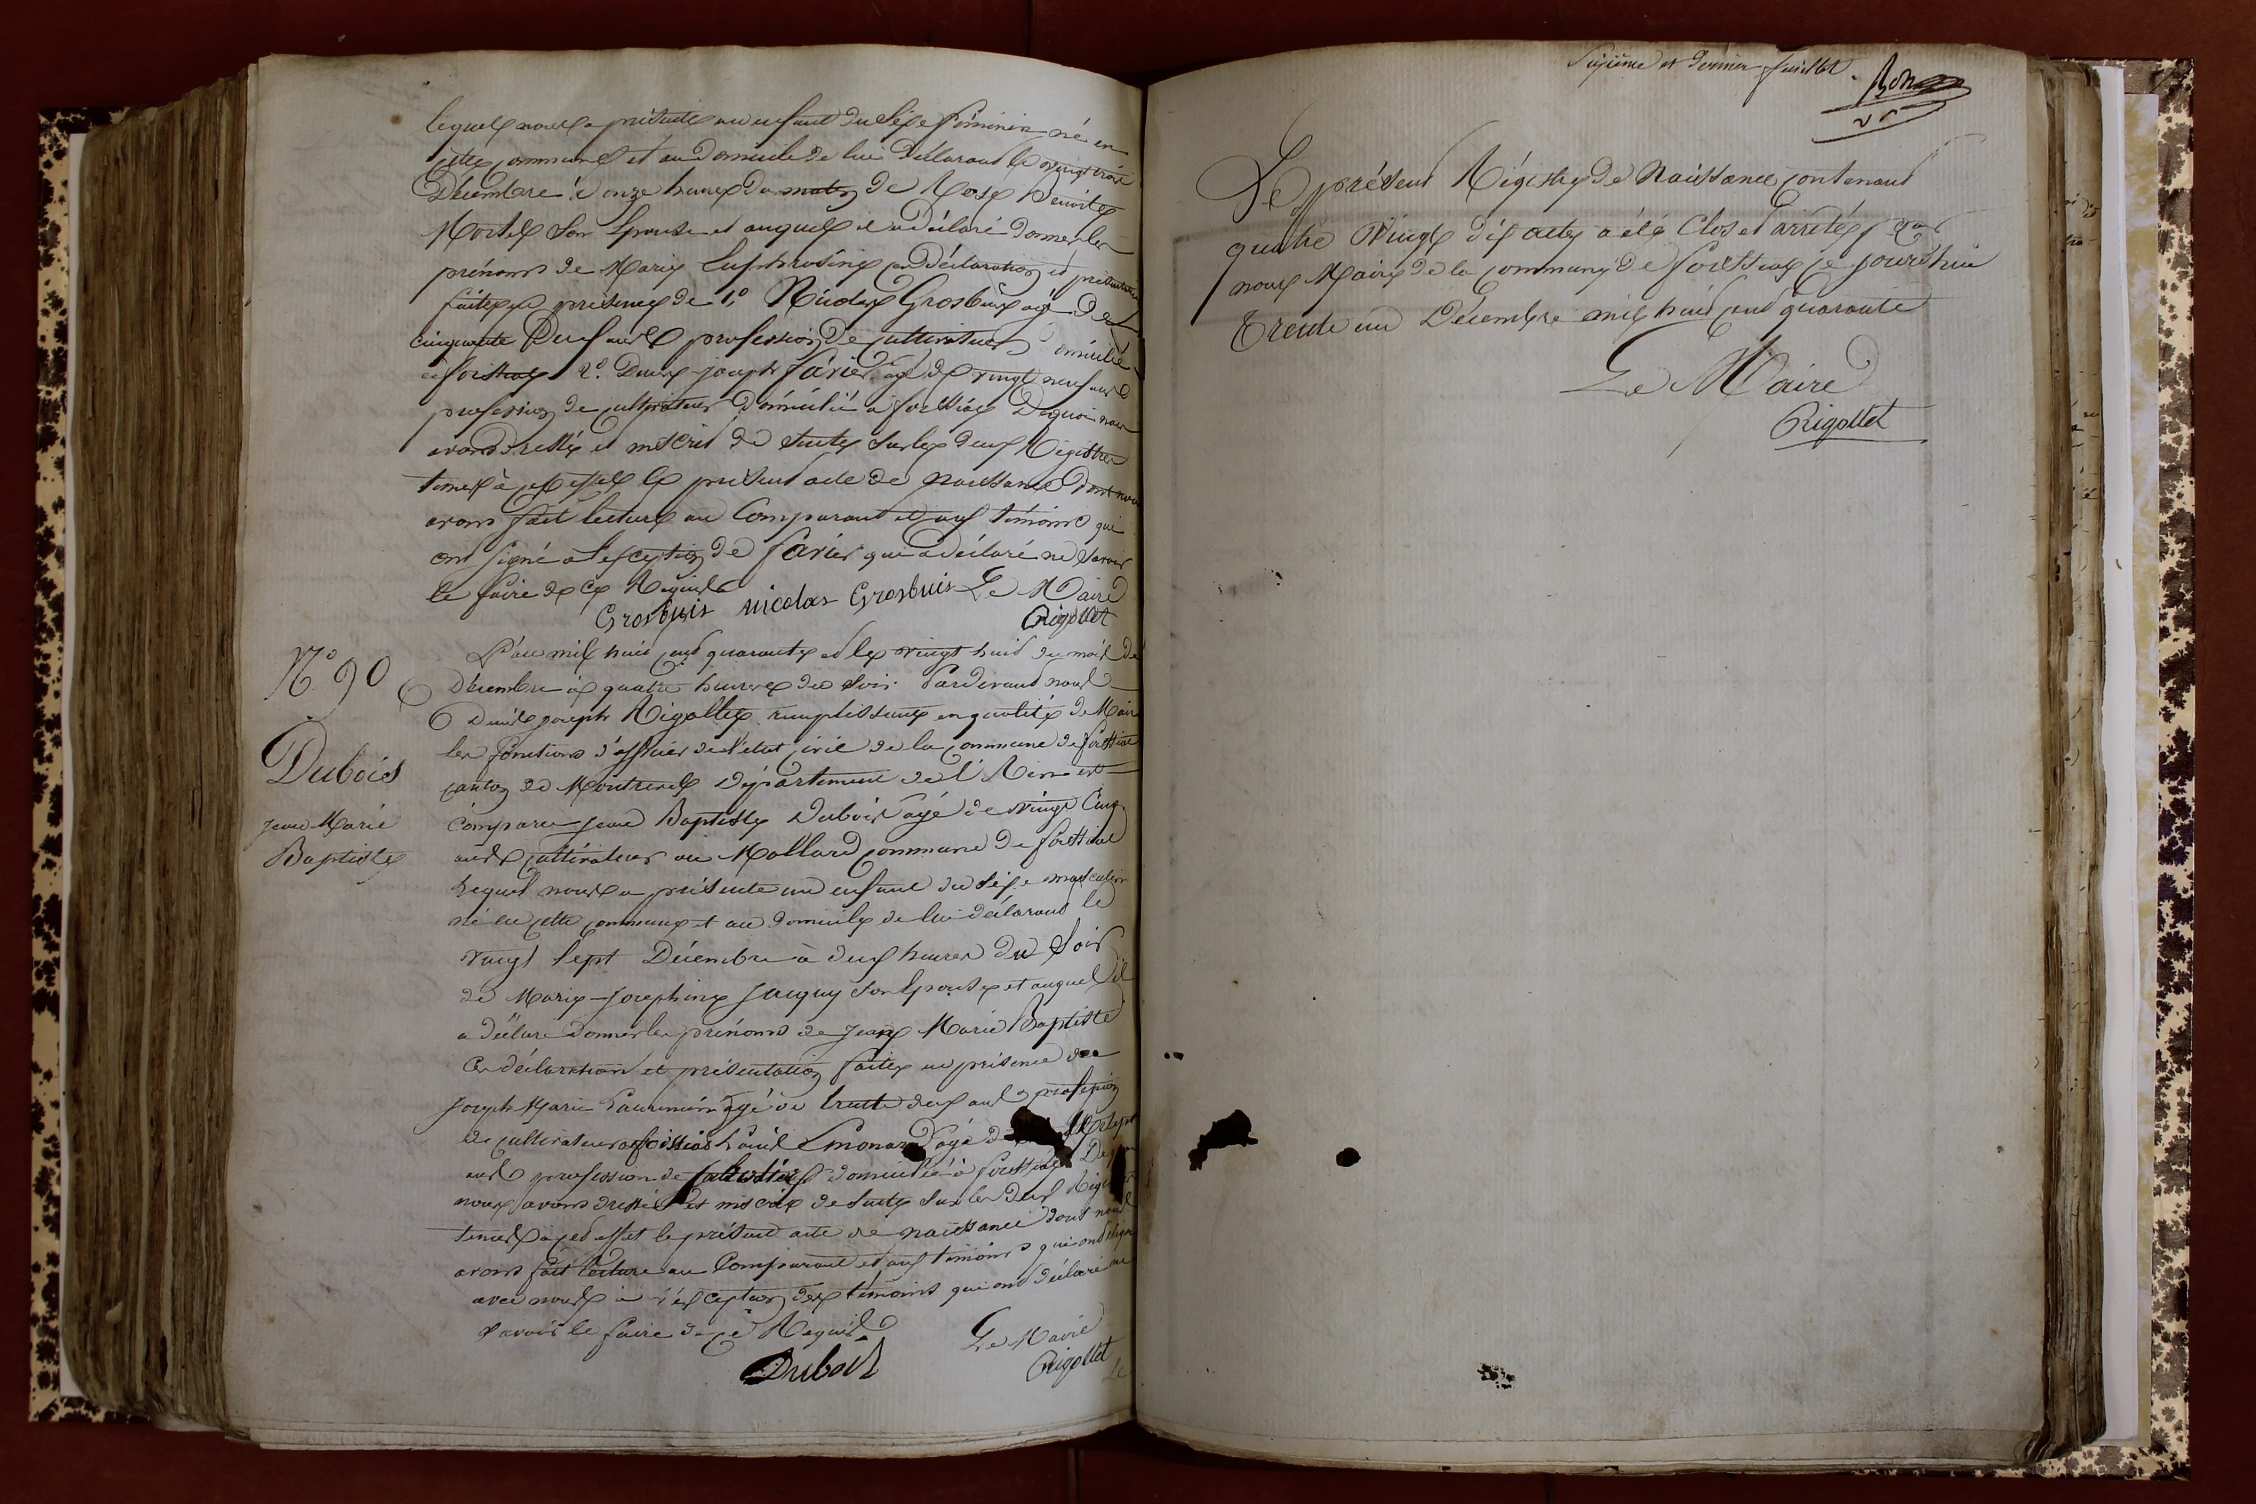 lequel nous a présenté un enfant du sexe féminin né en
cette commune et au domicile de lui déclarant le vingt trois
Décembre à onze heures du matin de Rose Benoite
Mortel son Epouse et auquel il a déclaré donner les
prénoms de Marie Euphrosine ces déclaration et présentation
faites en présence de 1° Nicolas Grosbuis agé de
cinquante Deux ans profession de cultivateur domicilié
à foissiat 2° Denis joseph favier agé de vingt neuf ans
profession de cultivateur domicilié à foissiat De quoi nous
avons dressé et inscrit de suite sur les deux Registres
tenus à cet effet le présent acte de naissance dont nous
avons fait lecture au Comparant et aux témoins qui
ont signé a l'exception de favier qui a déclaré ne savoir
le faire de ce Requis
Grosbuis nicolas Grosbuis Le Maire
Rigollet
N° 90
Dubois
Jean Marie
Baptiste
L'an mil huit cent quarante et le vingt huit du mois de
Décembre à quatre heures du soir Pardevant nous
Denis joseph Rigollet remplissant en qualité de Maire
les fonctions d'officier de l'état civil de la commune de foissiat
canton de Montrevel Département de l'Ain est
comparu Jean Baptiste Dubois agé de vingt Cinq
ans cultivateur au Mollard commune de foissiat
Lequel nous a présenté un enfant du sexe masculin
né en cette commune et au domicile de lui déclarant le
vingt sept Décembre à deux heures du Soir
de Marie Josephine Jacquy son Epouse et auquel il
a déclaré donner les prénoms de Jean Marie Baptiste
Ces déclaration et présentation faites en présence de
Joseph Marie agé de trente deux ans profession
de cultivateur a foissiat agé de sept
ans profession de domicilié à foissiat De
nous avons dressé et inscrit de suite sur les deux
tenus à cet effet le présent acte de naissance dont nous
avons fait lecture au Comparant et aux témoins qui ont signé
avec nous à l'exception des témoins qui ont déclaré ne
savoir le faire de ce Requis
Dubois
Le Maire
Rigollet
Le
Sixième et dernier feuillet
Le présent Régistre de Naissance contenant
quatre Vingt dix actes a été Clos et arrêté par
nous Maire de la commune de foissiat ce jourd'hui
Trente un Décembre mil huit cent quarante
Le Maire
Rigollet